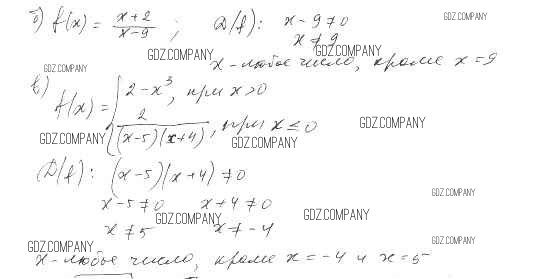 б) f(x) = x+2 / x-9 ; D(f): x-9≠0
GDZ.COMPANY
x≠9
GDZ.COMPANY
GDZ.COMPANY
x - любое число, кроме x=9
GDZ.COMPANY
в)
f(x) = { 2-x³, при x>0
2 / (x-5)(x+4), при x≤0
GDZ.COMPANY
GDZ.COMPANY
GDZ.COMPANY
D(f): (x-5)(x+4)≠0
GDZ.COMPANY
x-5≠0 x+4≠0
GDZ.COMPANY
GDZ.COMPANY
x≠5 x≠-4
GDZ.COMPANY
GDZ.COMPANY
x - любое число, кроме x=-4 и x=5